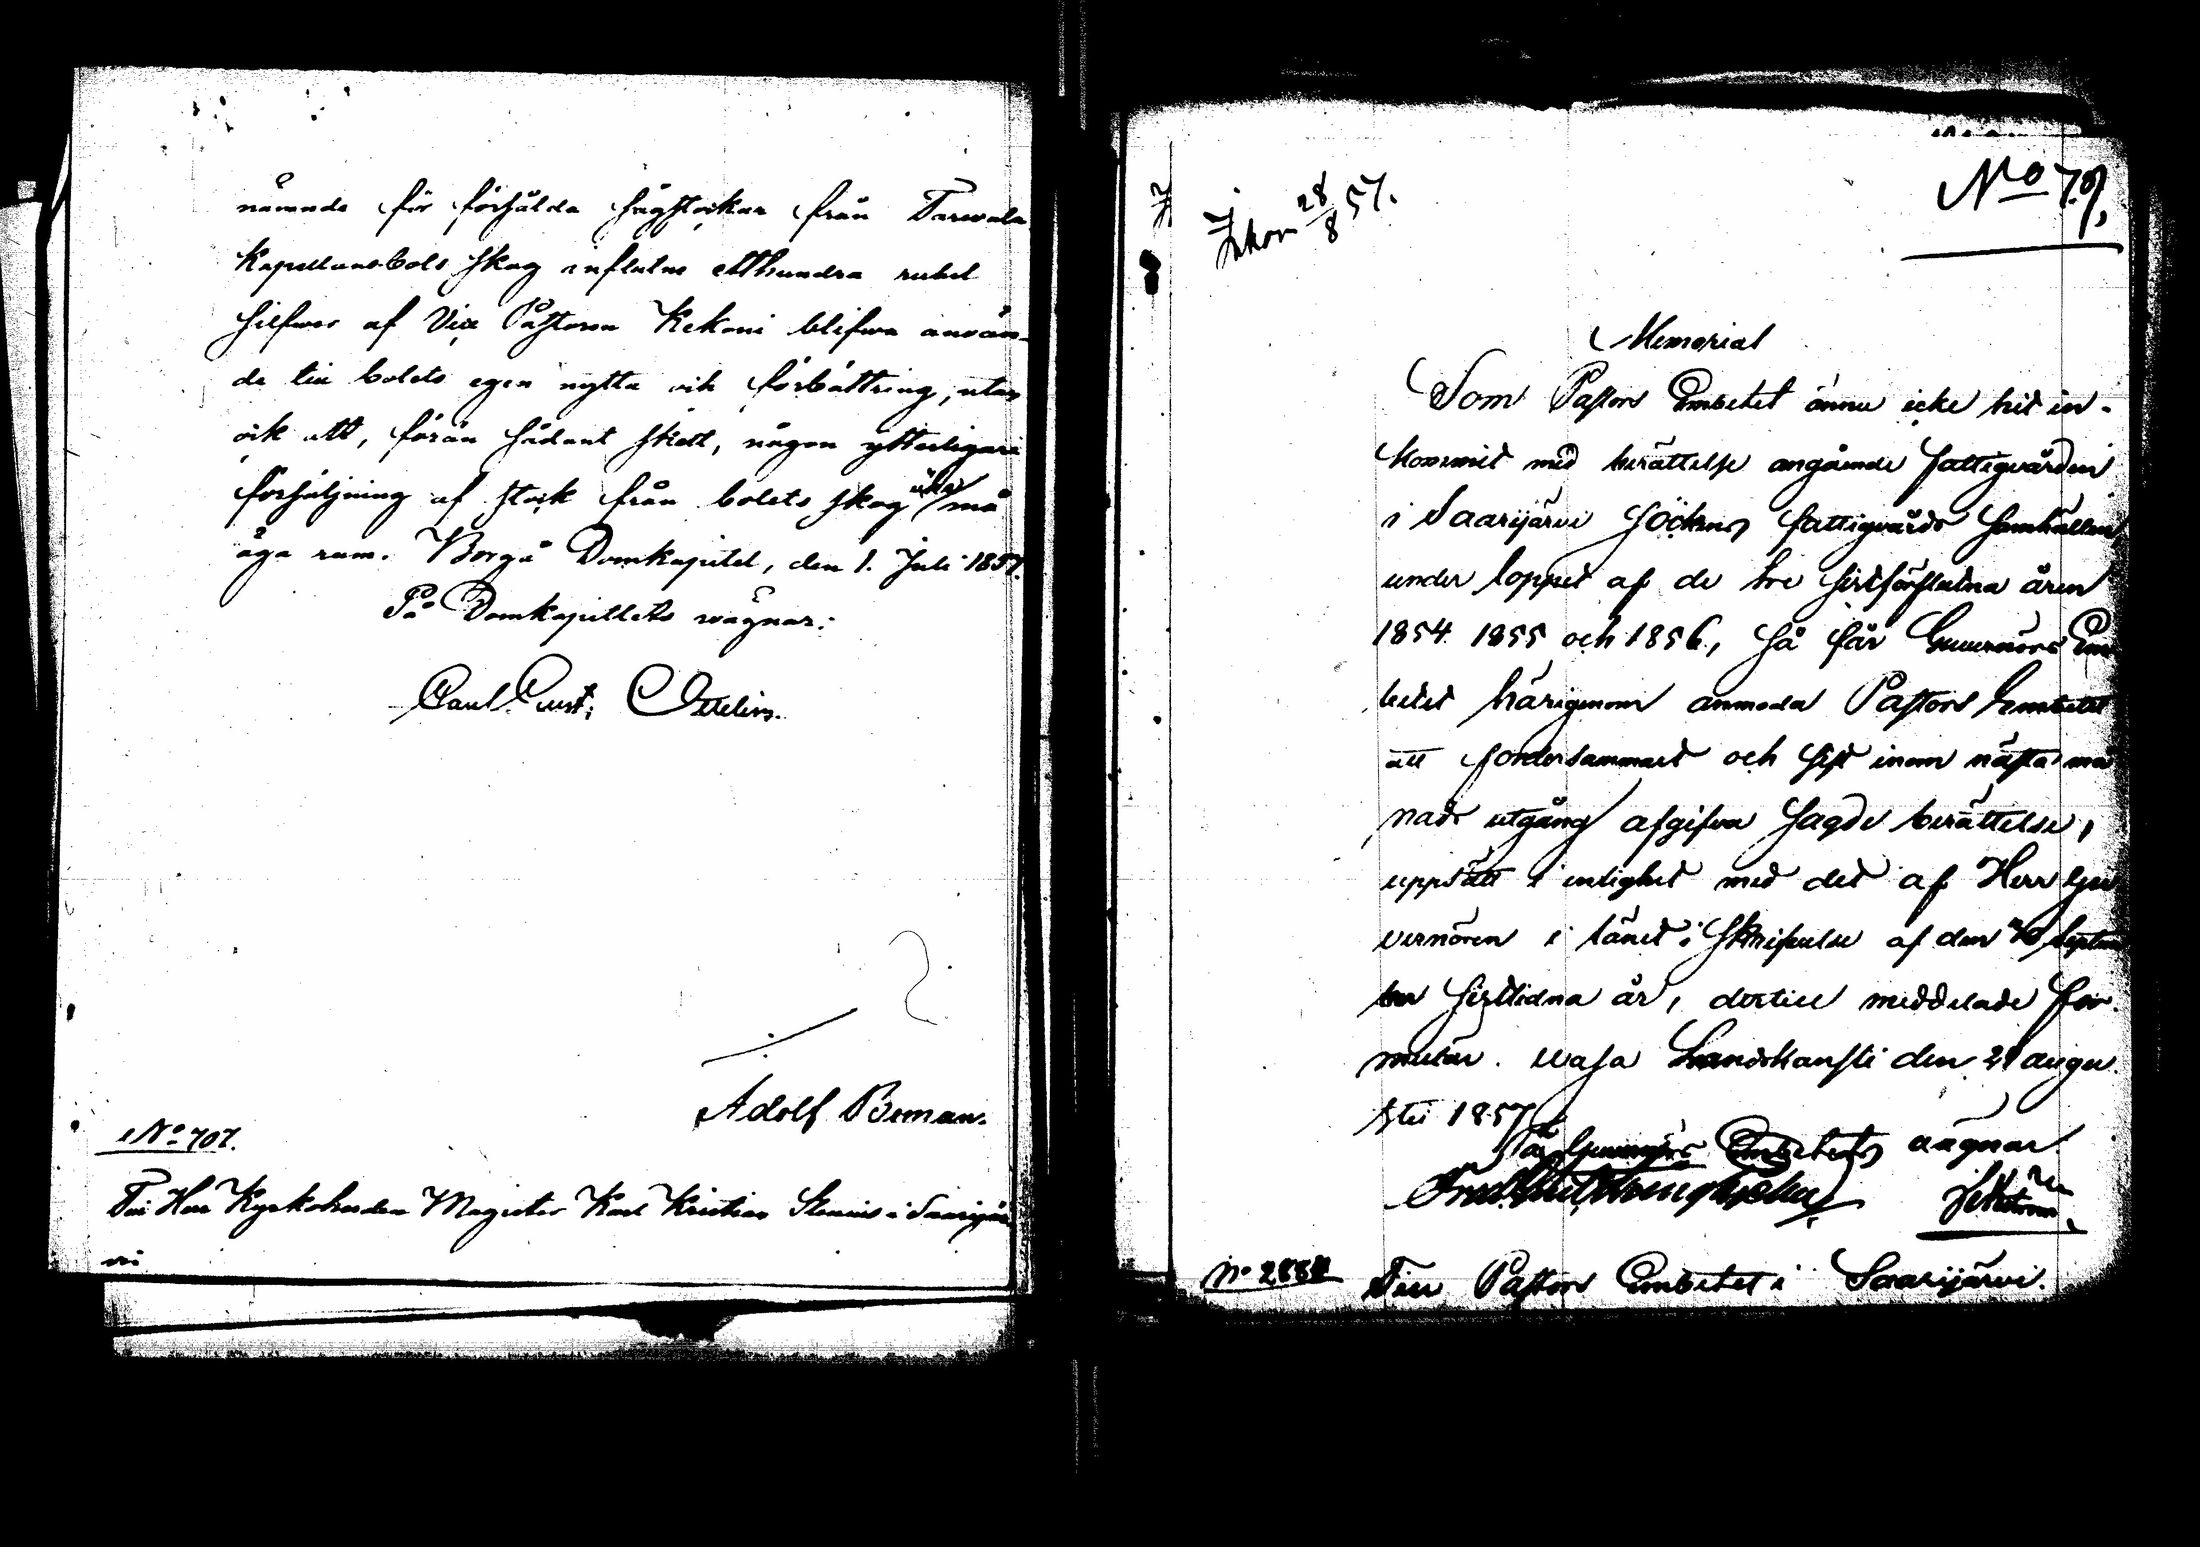 nämnde för försålda sågstockar från Tarwala
Kapellansbols skog influtne etthundra rubel
silfwer af Vice Pastoren Kekoni blifwa använ-
de till bolets egen nytta och förbättring, utan
ock att, förän sådant skett, någon ytterligare
försäljning af stock från bolets skog icke må
äga rum. Borgå Domkapitel, den 1. Juli 1857.
På Domkapitlets wägnar:
Carl Gust; Ottelin.
Adolf Boman.
No 707.
Till Herr Kyrkoherden Magister Karl Kristian Stenius i Saarijär
vi
Inkom 28/8 57.
No 79,
Memorial
Som Pastors Embetet ännu icke hit in-
kommit med berättelse angående fattigvården
i Saarijärvi Sockens fattigvårds samhällen
under loppet af de tre sistförflutna åren
1854. 1855 och 1856, så får Guvernörs Em
betet härigenom anmoda Pastors Embetet
att fordersammast och sist inom nästa må
nads utgång afgifva sagde berättelse,
uppsatt i enlighet med det af Herr Gu
vernören i länet i skrifvelse af den Septem
ber sistlidna år, dertill meddelade for
mulär. Wasa Landskansli den 21 augu
sti 1857.
På Guvernörs Embetets vägnar.
No 2884
Till Pastors Embetet i Saarijärvi.